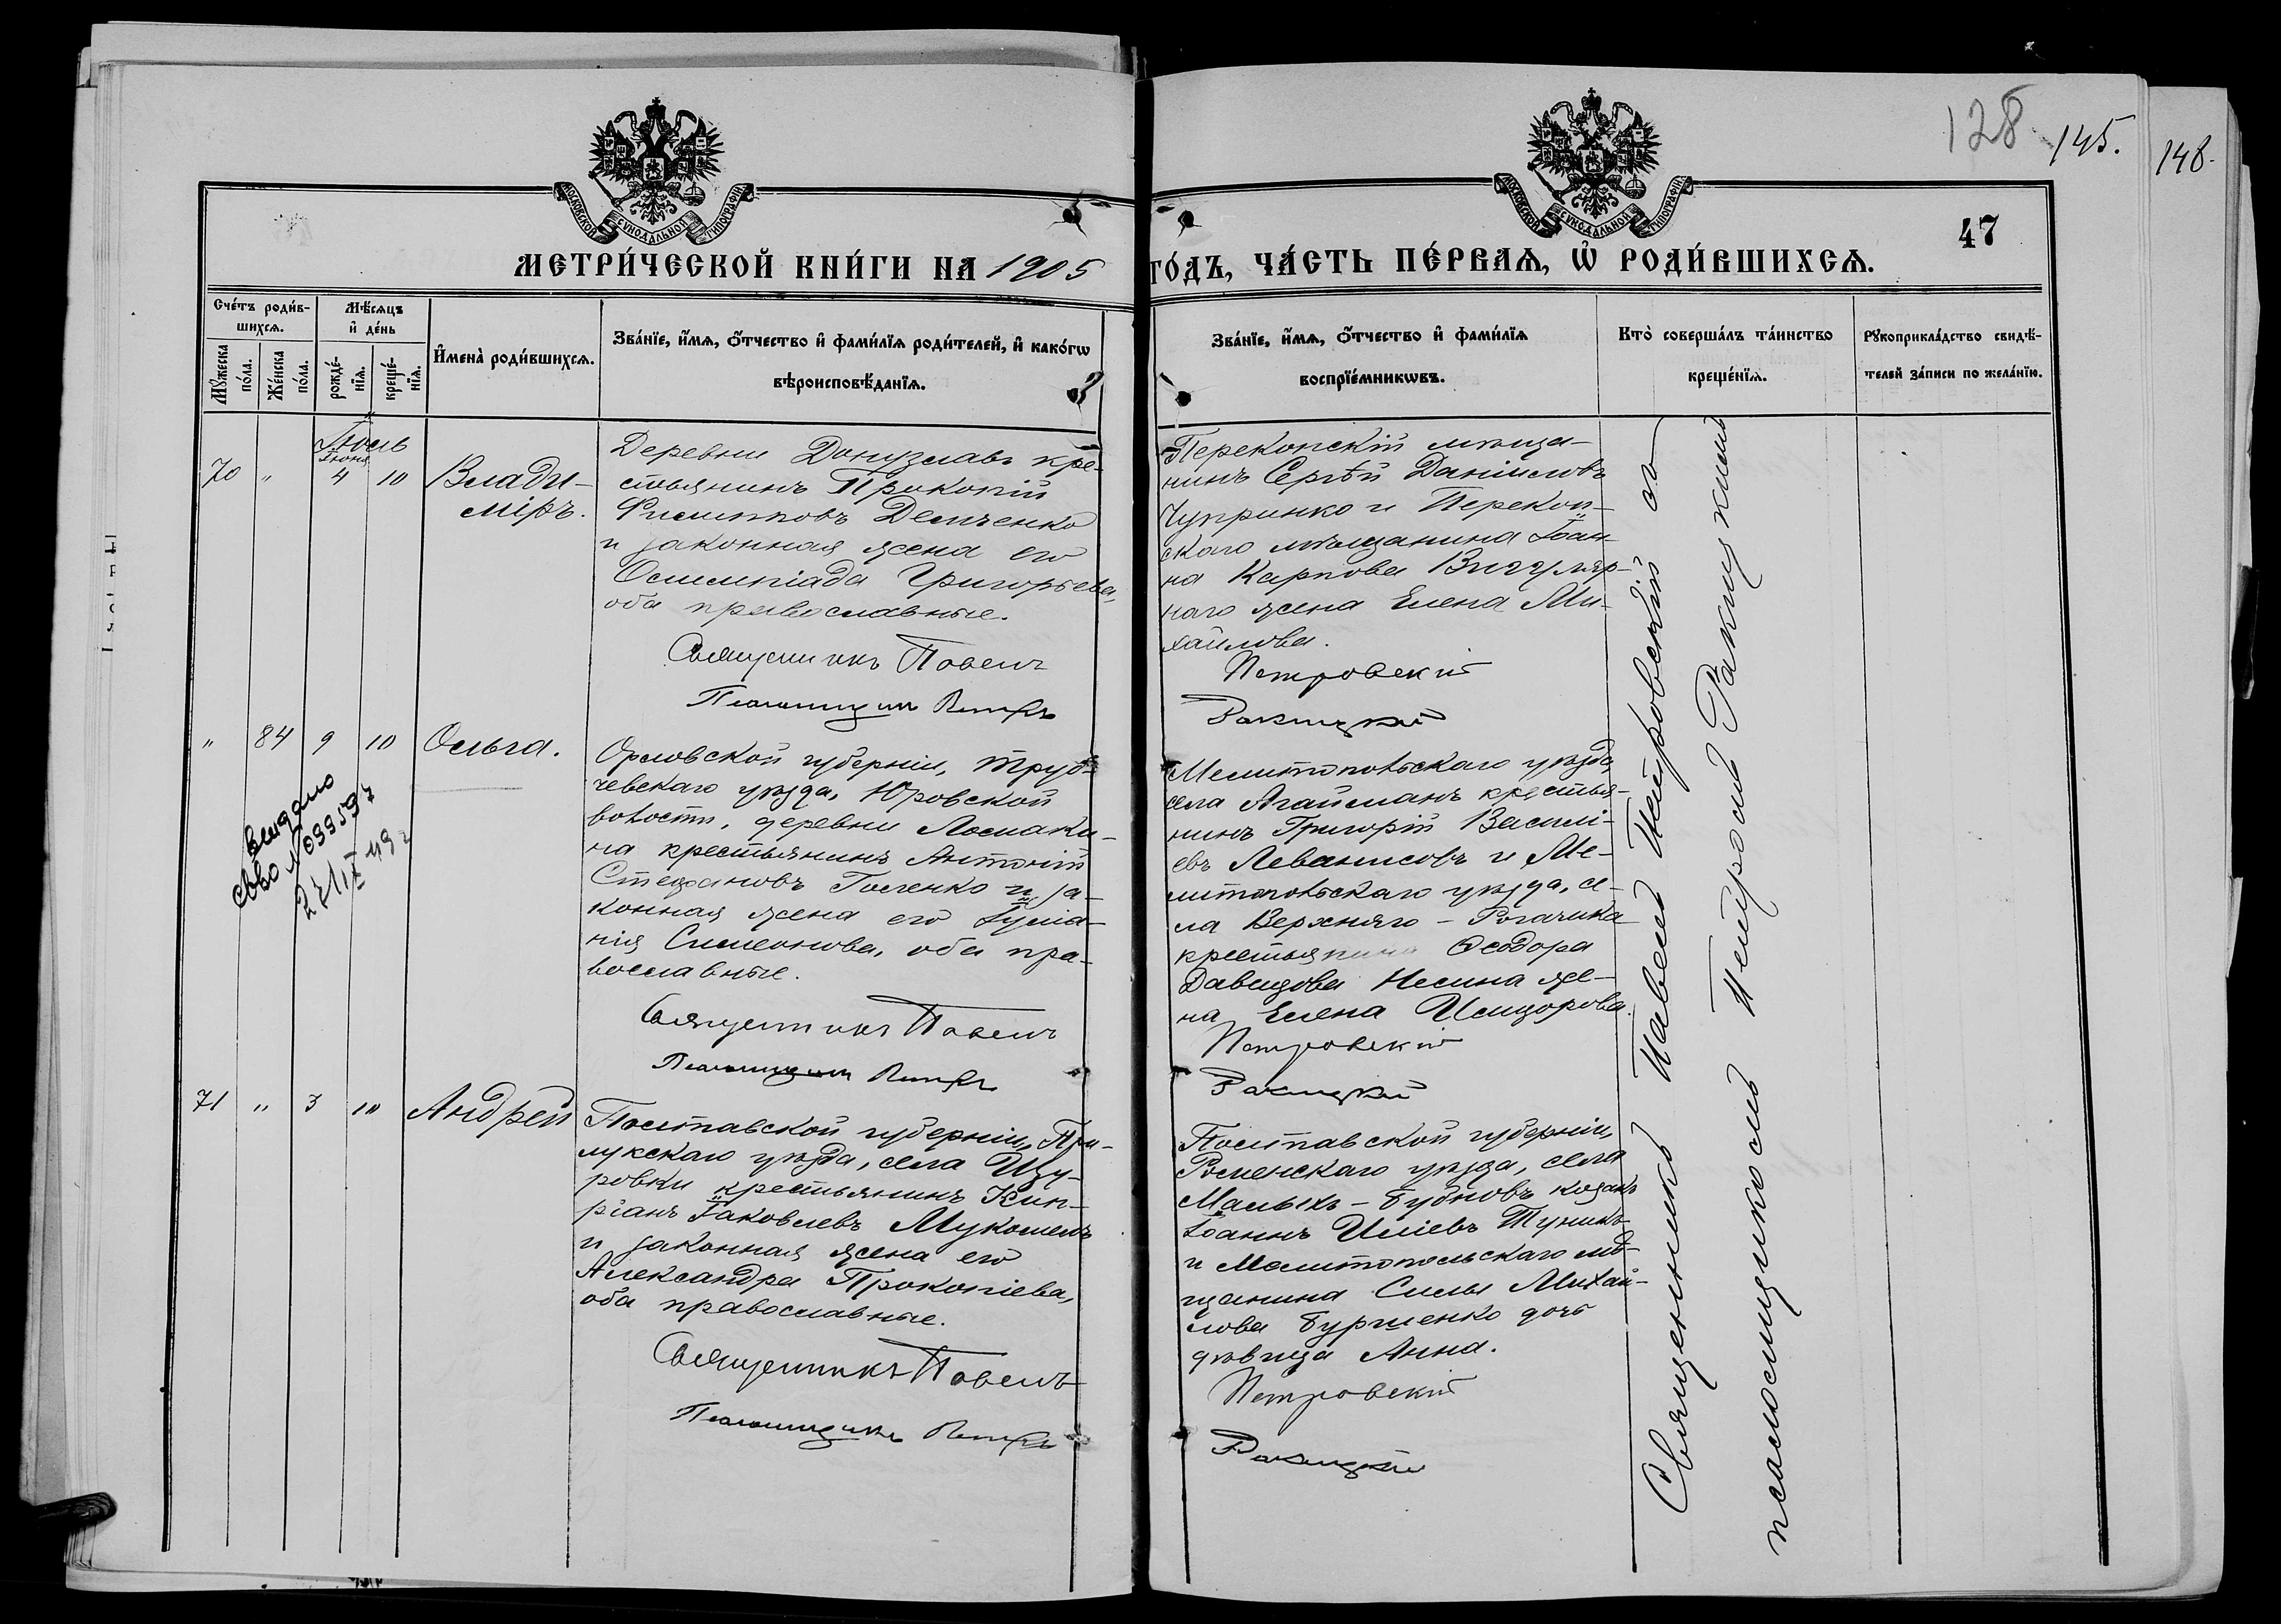 128
145.
148.
МОСКОВСКОЙ СѴНОДАЛЬНОЙ ТИПОГРАФІИ
МОСКОВСКОЙ СѴНОДАЛЬНОЙ ТИПОГРАФІИ
47
МЕТРИ́ЧЕСКОЙ КНИ́ГИ НА 1905
ГО́ДЪ, ЧА́СТЬ ПЕ́РВАѦ, Ѡ҆ РОДИ́ВШИХСѦ.
Сче́тъ роди́в-
шихсѧ.
Мѣ́сѧцъ
и҆ де́нь
Мꙋ́жеска
по́ла.
Же́нска
по́ла.
рожде́-
нїѧ.
креще́-
нїѧ.
И҆мена̀ роди́вшихсѧ.
Зва́нїе, и҆́мѧ, ѻ҆́тчество и҆ фами́лїѧ роди́телей, и҆ како́гѡ
вѣроисповѣ́данїѧ.
Зва́нїе, и҆́мѧ, ѻ҆́тчество и҆ фами́лїѧ
воспрїе́мникѡвъ.
Кто̀ соверша́лъ та́инство
креще́нїѧ.
Рꙋкоприкла́дство свидѣ́-
телей за́писи по жела́нїю.
Іюль
Іюня
70 " 4 10
Влади-
міръ.
Деревни Донузлавъ кре-
стьянинъ Прокопій
Филипповъ Демченко
и законная жена его
Олимпіада Григорьева,
оба православные.
Священникъ Павелъ
Псаломщикъ Петръ
Перекопскій мѣща-
нинъ Сергѣй Даніиловъ
Чупринко и Перекоп-
скаго мѣщанина Іоан-
на Карпова
наго жена Елена Ми-
хайлова.
Петровскій
Ракицкій
" 84 9 10
Ольга.
выдано
св-во № 099597
49 г
Орловской губерніи, Труб-
чевскаго уѣзда, Юровской
волости, деревни Ломаки-
на крестьянинъ Антоній
Стефановъ Голенко и за-
конная жена его Іуліа-
нія Симеонова, оба пра-
вославные.
Священникъ Павелъ
Псаломщикъ Петръ
Мелитопольскаго уѣзда,
села Агайманъ крестья-
нинъ Григорій Василі-
евъ Леванисовъ и Ме-
литопольскаго уѣзда, се-
ла Верхняго-Рогачика
крестьянина Ѳеодора
Давидова Несина же-
на Елена Исидорова.
Петровскій
Ракицкій
71 " 3 10
Андрей
Полтавской губерніи, При-
лукскаго уѣзда, села Ицу-
ровки крестьянинъ Кип-
ріанъ Іаковлевъ Мукомелъ
и законная жена его
Александра Прокопіева,
оба православные.
Священникъ Павелъ
Псаломщикъ Петръ
Полтавской губерніи,
Роменскаго уѣзда, села
Малыхъ-Бубновъ козакъ
Іоаннъ Иліевъ Туникъ
и Мелитопольскаго мѣ-
щанина Силы Михай-
лова Бурименко дочь
дѣвица Анна.
Петровскій
Ракицкій
Священникъ Павелъ Петровскій съ
псаломщикомъ Петромъ Ракицкимъ